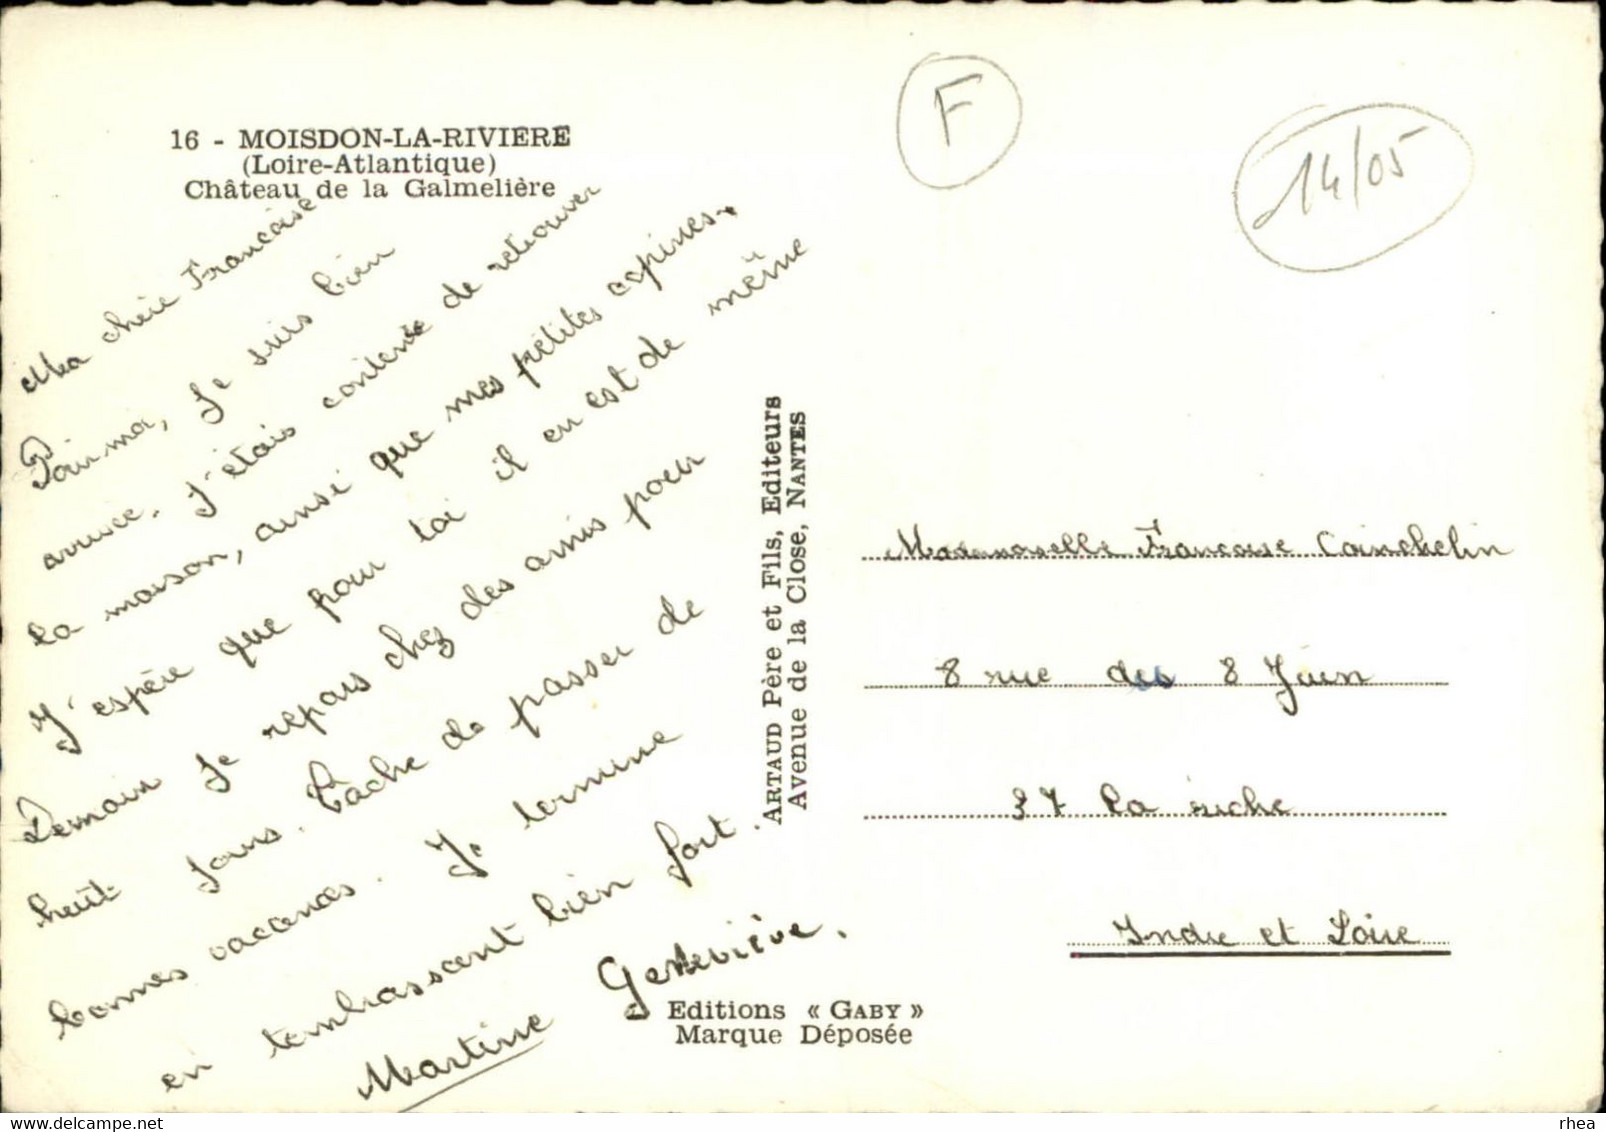 16 - MOISDON-LA-RIVIERE
(Loire-Atlantique)
Château de la Galmelière
F
14/05
Ma chère Françoise
Pour moi, je suis bien
arrivée. J'étais contente de retrouver
la maison, ainsi que mes petites copines.
J'espère que pour toi il en est de même
Demain je repars chez des amis pour
huit jours. Tâche de passer de
bonnes vacances. Je termine
en t'embrassant bien fort.
Martine Geneviève.
ARTAUD Père et Fils, Editeurs
Avenue de la Close, NANTES
Editions « GABY »
Marque Déposée
Mademoiselle Françoise Cainchelin
8 rue des 8 Juin
37 la riche
Indre et Loire
rhea